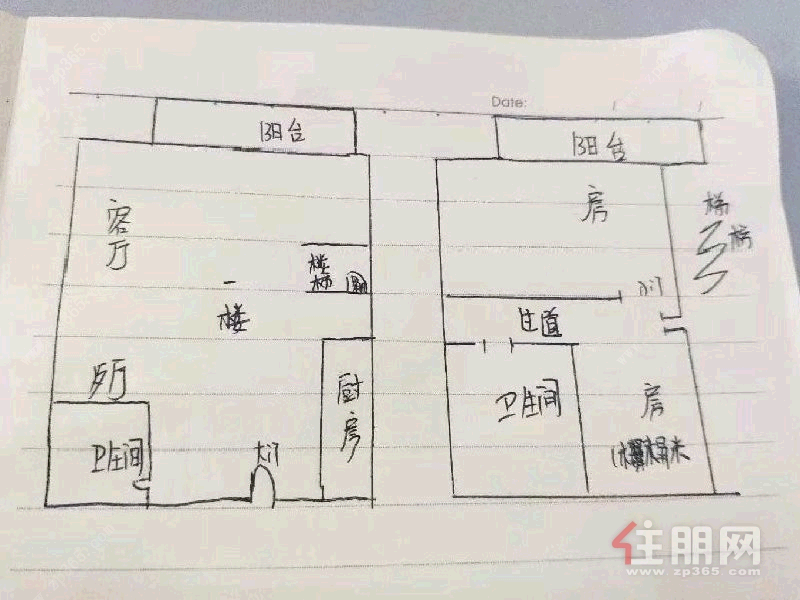 Date:
阳台
阳台
客
厅
房
楼
梯
一
楼
梯
门
走道
厅
厨
房
卫生间
大门
卫生间
房
住朋网
www.zp365.com